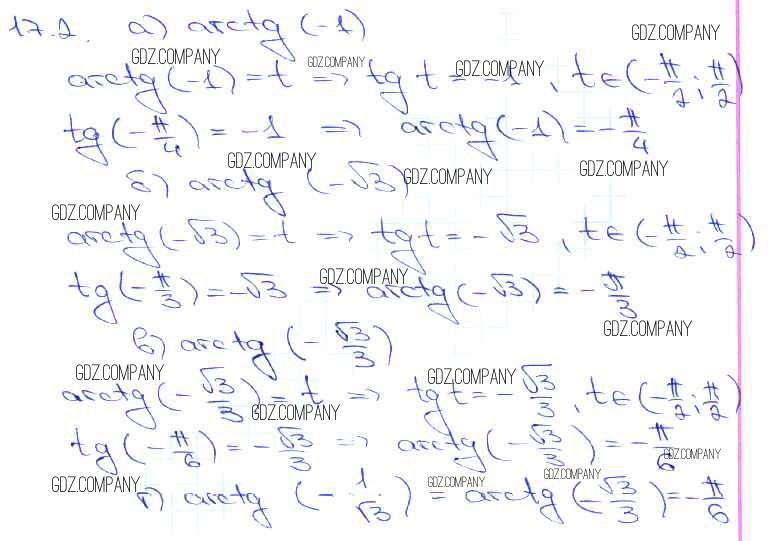 17.2. а) arctg (-1)
GDZ.COMPANY
GDZ.COMPANY GDZ.COMPANY GDZ.COMPANY
arctg(-1) = t => tg t = -1, t∈(-π/2; π/2)
tg(-π/4) = -1 => arctg(-1) = -π/4
GDZ.COMPANY GDZ.COMPANY
б) arctg (-√3) GDZ.COMPANY
GDZ.COMPANY
arctg(-√3) = t => tg t = -√3, t∈(-π/2; π/2)
GDZ.COMPANY
tg(-π/3) = -√3 => arctg(-√3) = -π/3
GDZ.COMPANY
в) arctg (-√3/3)
GDZ.COMPANY GDZ.COMPANY
arctg(-√3/3) = t => tg t = -√3/3, t∈(-π/2; π/2)
GDZ.COMPANY
tg(-π/6) = -√3/3 => arctg(-√3/3) = -π/6
GDZ.COMPANY
GDZ.COMPANY GDZ.COMPANY GDZ.COMPANY
г) arctg (-1/√3) = arctg(-√3/3) = -π/6